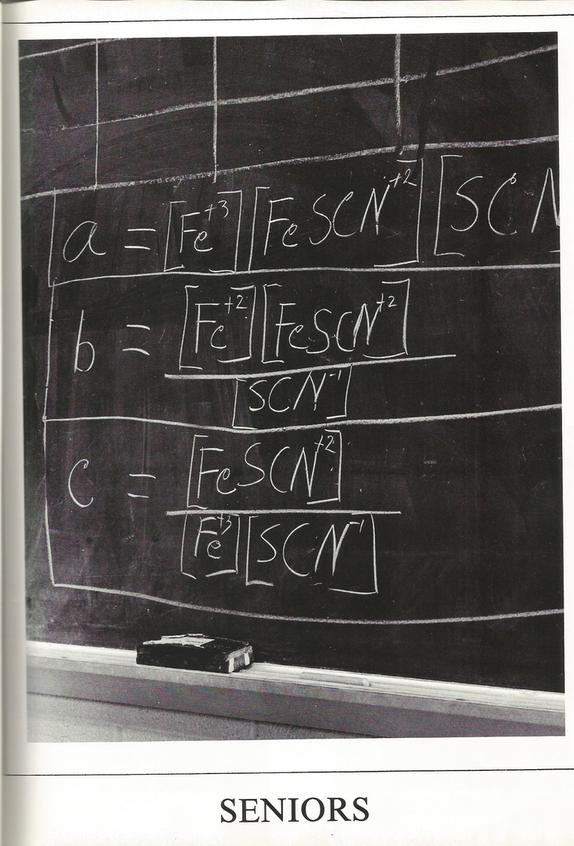 a = [Fe⁺³][FeSCN⁺²][SCN
b = [Fe⁺²][FeSCN⁺²]
[SCN⁻¹]
c = [FeSCN⁺²]
[Fe⁺³][SCN⁻¹]
SENIORS